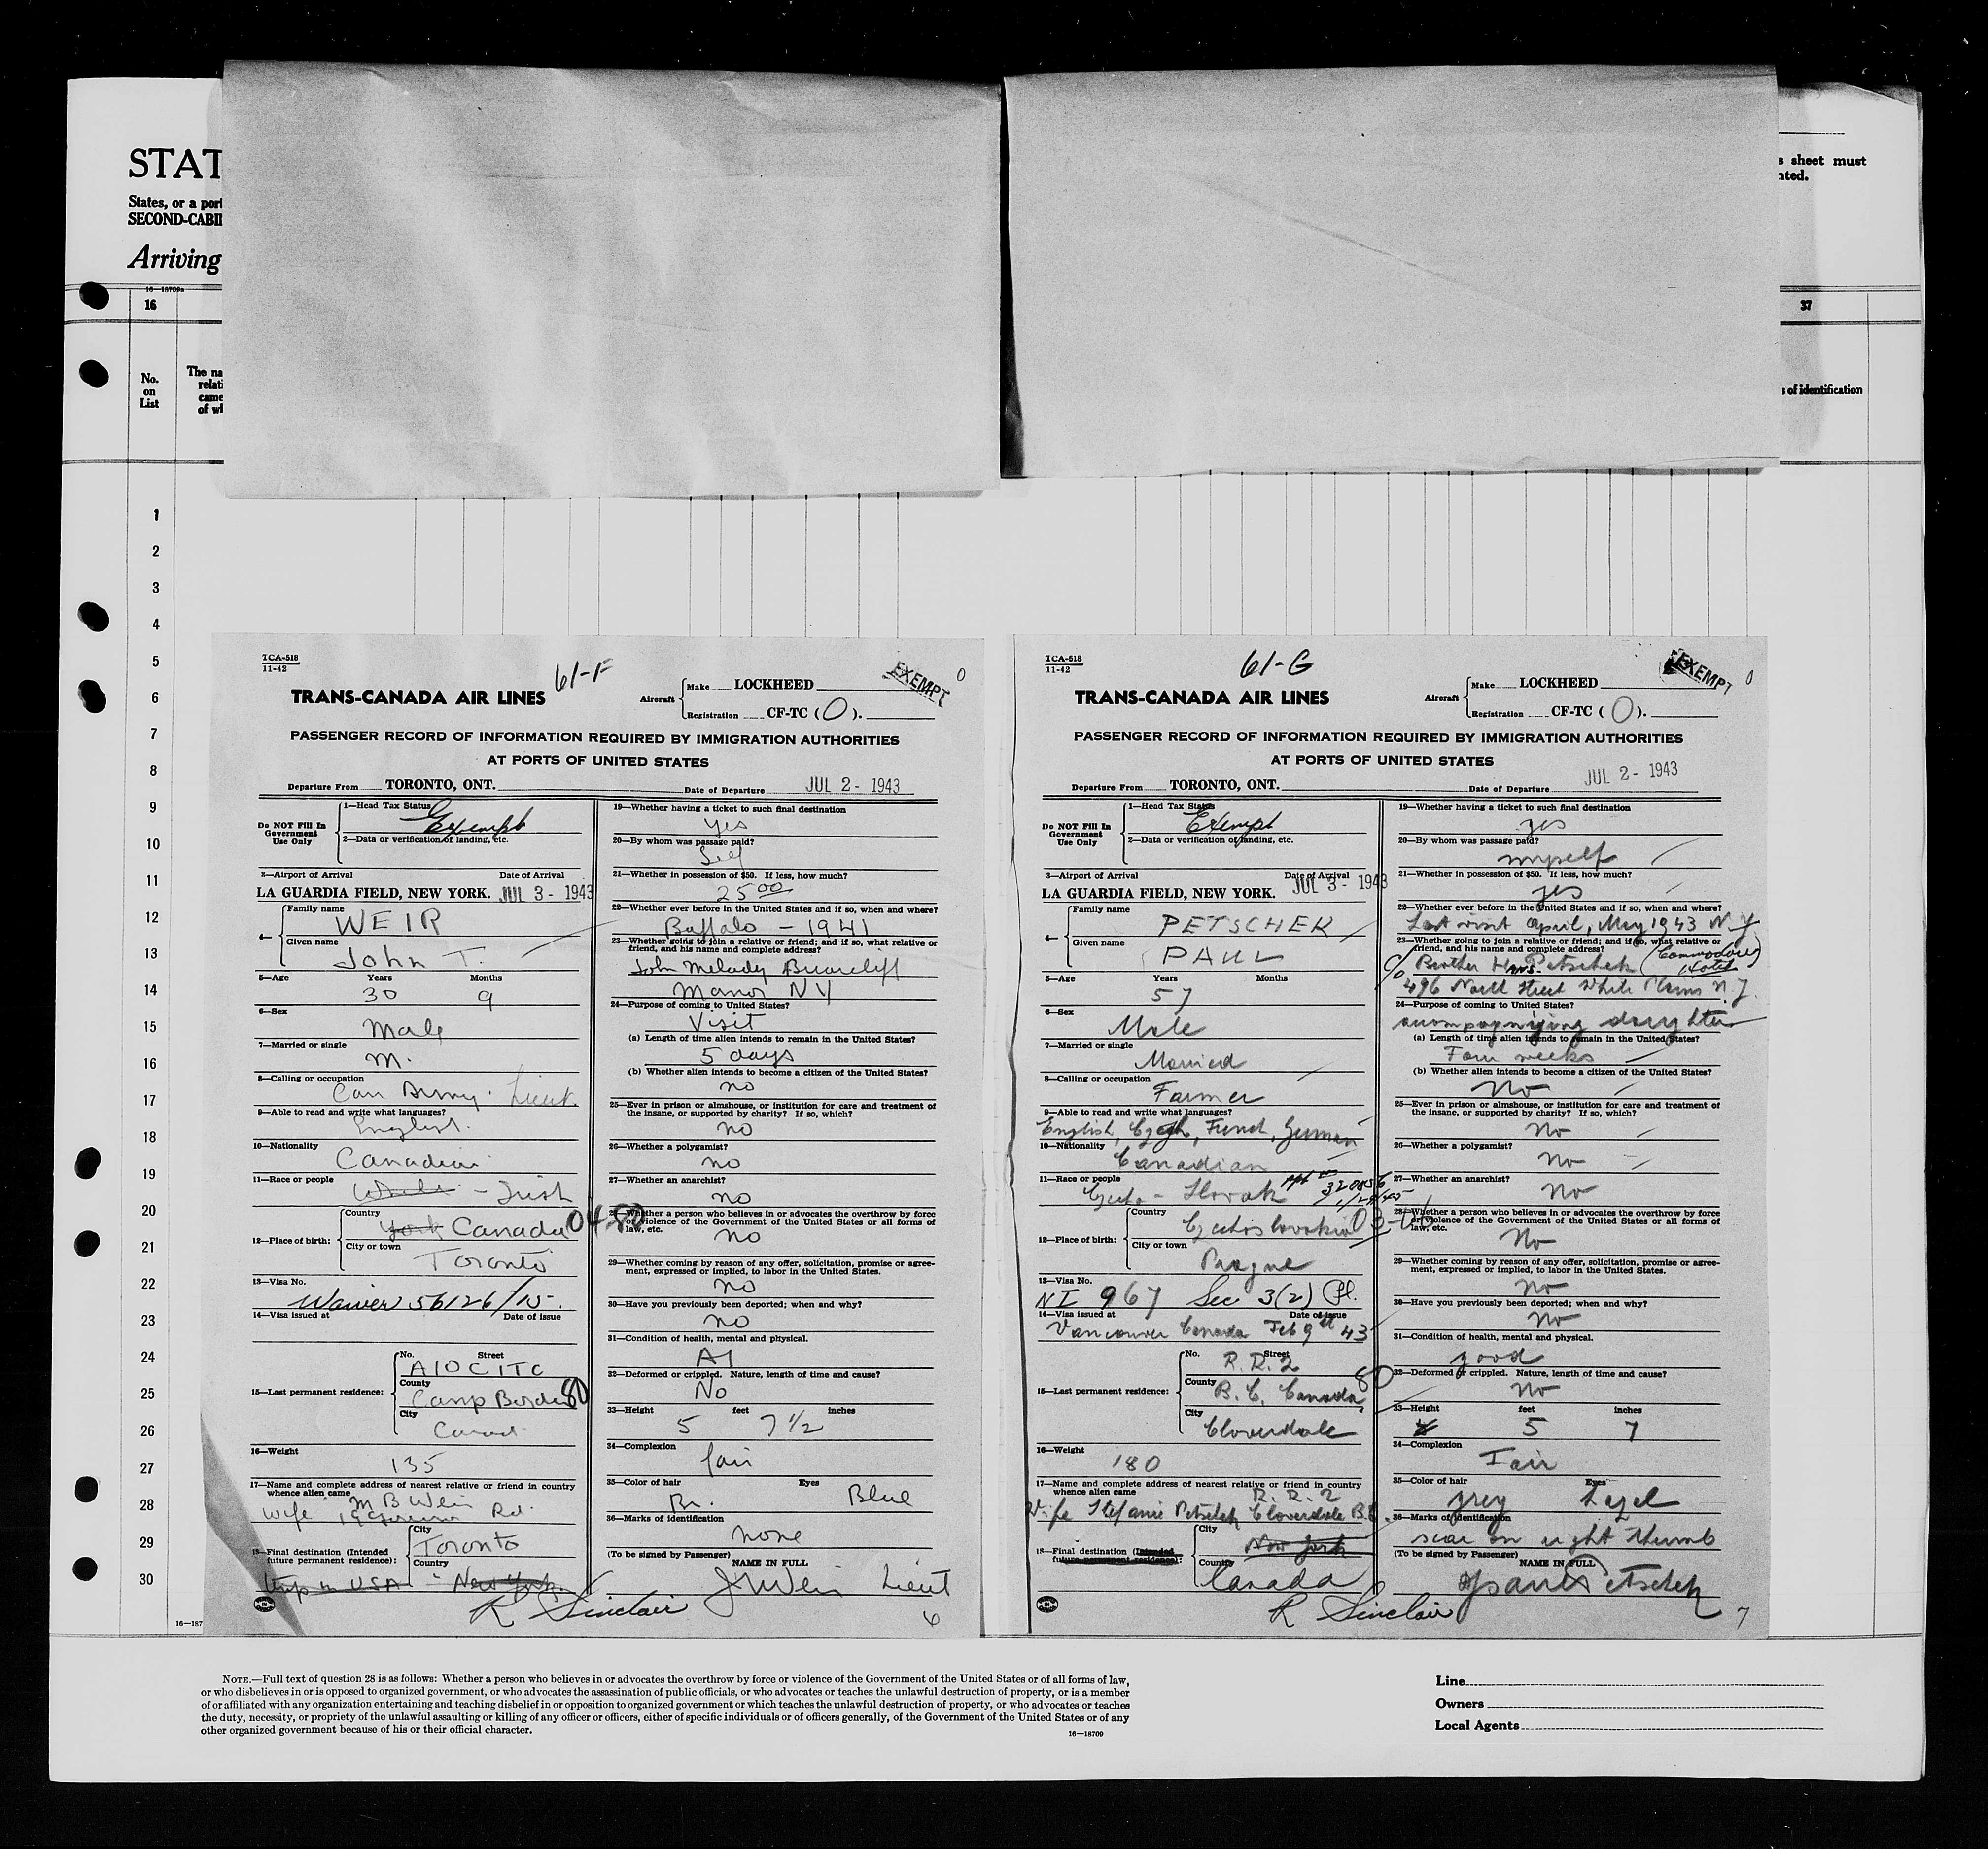 STAT
States, or a port
SECOND-CABIN
Arriving
s sheet must
nted.
16—18709a
16
37
No.
on
List
The na
relati
came
of wh
s of identification
1
2
3
4
5
6
7
8
9
10
11
12
13
14
15
16
17
18
19
20
21
22
23
24
25
26
27
28
29
30
16—187
TCA-518
11-42
61-F
EXEMPT
0
TRANS-CANADA AIR LINES
Aircraft
Make LOCKHEED
Registration CF-TC ( O ).
PASSENGER RECORD OF INFORMATION REQUIRED BY IMMIGRATION AUTHORITIES
AT PORTS OF UNITED STATES
Departure From TORONTO, ONT. Date of Departure JUL 2 - 1943
Do NOT Fill In
Government
Use Only
1—Head Tax Status
Exempt
2—Data or verification of landing, etc.
3—Airport of Arrival Date of Arrival
LA GUARDIA FIELD, NEW YORK. JUL 3 - 1943
4—
Family name
WEIR
Given name
John T.
5—Age Years Months
30 9
6—Sex
Male
7—Married or single
M.
8—Calling or occupation
Can Army. Lieut.
9—Able to read and write what languages?
English.
10—Nationality
Canadian
11—Race or people
White - Irish
12—Place of birth:
Country
York Canada 04-80
City or town
Toronto
13—Visa No.
Waiver 56126/15.
14—Visa issued at Date of issue
15—Last permanent residence:
No. Street
A10 CITC
County
Camp Borden 80
City
Canad
16—Weight
135
17—Name and complete address of nearest relative or friend in country
whence alien came
Wife M B Weir
19 Rd.
18—Final destination (Intended
future permanent residence):
City
Toronto
Country
temp in USA - New York.
19—Whether having a ticket to such final destination
Yes
20—By whom was passage paid?
Self
21—Whether in possession of $50. If less, how much?
25 00
22—Whether ever before in the United States and if so, when and where?
Buffalo - 1941
23—Whether going to join a relative or friend; and if so, what relative or
friend, and his name and complete address?
John Melady Briarcliff
Manor NY
24—Purpose of coming to United States?
Visit
(a) Length of time alien intends to remain in the United States?
5 days
(b) Whether alien intends to become a citizen of the United States?
no
25—Ever in prison or almshouse, or institution for care and treatment of
the insane, or supported by charity? If so, which?
no
26—Whether a polygamist?
no
27—Whether an anarchist?
no
28—Whether a person who believes in or advocates the overthrow by force
or violence of the Government of the United States or all forms of
law, etc.
no
29—Whether coming by reason of any offer, solicitation, promise or agree-
ment, expressed or implied, to labor in the United States.
no
30—Have you previously been deported; when and why?
no
31—Condition of health, mental and physical.
A1
32—Deformed or crippled. Nature, length of time and cause?
No
33—Height feet inches
5 7 1/2
34—Complexion
fair
35—Color of hair Eyes
Br. Blue
36—Marks of identification
none
(To be signed by Passenger)
NAME IN FULL
J T Weir Lieut
R Sinclair
6
TCA-518
11-42
61-G
EXEMPT
0
TRANS-CANADA AIR LINES
Aircraft
Make LOCKHEED
Registration CF-TC ( O ).
PASSENGER RECORD OF INFORMATION REQUIRED BY IMMIGRATION AUTHORITIES
AT PORTS OF UNITED STATES
Departure From TORONTO, ONT. Date of Departure JUL 2 - 1943
Do NOT Fill In
Government
Use Only
1—Head Tax Status
Exempt
2—Data or verification of landing, etc.
3—Airport of Arrival Date of Arrival
LA GUARDIA FIELD, NEW YORK. JUL 3 - 1943
4—
Family name
PETSCHEK
Given name
PAUL
5—Age Years Months
57
6—Sex
Male
7—Married or single
Married
8—Calling or occupation
Farmer
9—Able to read and write what languages?
English, Czech, French, German
10—Nationality
Canadian
11—Race or people
Czecho-Slovak
12—Place of birth:
Country
Czechoslovakia
City or town
Prague
13—Visa No.
NI 967 Sec 3(2) Pl.
14—Visa issued at Date of issue
Vancouver Canada Feb 9th 43
15—Last permanent residence:
No. Street
R. R. 2
County
B. C. Canada 80
City
Cloverdale
16—Weight
180
17—Name and complete address of nearest relative or friend in country
whence alien came R. R. 2
Wife Stefanie Petschek Cloverdale B.C.
18—Final destination (Intended
future permanent residence):
City
New York
Country
Canada
19—Whether having a ticket to such final destination
yes
20—By whom was passage paid?
myself
21—Whether in possession of $50. If less, how much?
yes
22—Whether ever before in the United States and if so, when and where?
Last visit April, May 1943 N.Y.
23—Whether going to join a relative or friend; and if so, what relative or
friend, and his name and complete address?
c/o Brother Hans Petschek (Commodore Hotel)
496 North Street White Plains N.Y.
24—Purpose of coming to United States?
accompagnying daughter
(a) Length of time alien intends to remain in the United States?
Four weeks
(b) Whether alien intends to become a citizen of the United States?
No
25—Ever in prison or almshouse, or institution for care and treatment of
the insane, or supported by charity? If so, which?
No
26—Whether a polygamist?
No
27—Whether an anarchist?
No
28—Whether a person who believes in or advocates the overthrow by force
or violence of the Government of the United States or all forms of
law, etc.
No
29—Whether coming by reason of any offer, solicitation, promise or agree-
ment, expressed or implied, to labor in the United States.
No
30—Have you previously been deported; when and why?
No
31—Condition of health, mental and physical.
good
32—Deformed or crippled. Nature, length of time and cause?
No
33—Height feet inches
5 7
34—Complexion
Fair
35—Color of hair Eyes
grey hazel
36—Marks of identification
scar on right thumb
(To be signed by Passenger)
NAME IN FULL
Paul Petschek
R Sinclair
7
NOTE.—Full text of question 28 is as follows: Whether a person who believes in or advocates the overthrow by force or violence of the Government of the United States or of all forms of law,
or who disbelieves in or is opposed to organized government, or who advocates the assassination of public officials, or who advocates or teaches the unlawful destruction of property, or is a member
of or affiliated with any organization entertaining and teaching disbelief in or opposition to organized government or which teaches the unlawful destruction of property, or who advocates or teaches
the duty, necessity, or propriety of the unlawful assaulting or killing of any officer or officers, either of specific individuals or of officers generally, of the Government of the United States or of any
other organized government because of his or their official character.
16—18709
Line
Owners
Local Agents